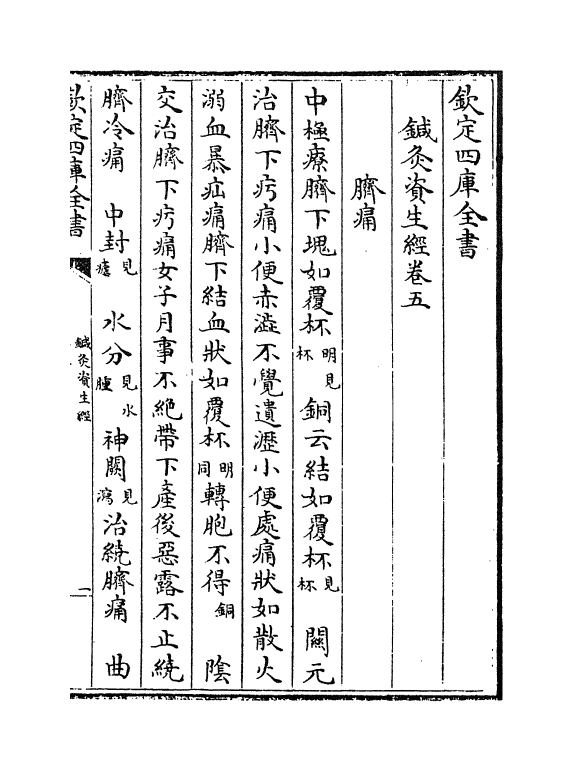 欽定四庫全書
鍼灸資生經卷五
臍痛
中極療臍下塊如覆杯明見杯銅云結如覆杯見杯 關元
治臍下疞痛小便赤澁不覺遺瀝小便處痛狀如散火
溺血暴疝痛臍下結血狀如覆杯明同轉胞不得銅 陰
交治臍下疞痛女子月事不絶帶下產後惡露不止繞
臍冷痛 中封見瘧 水分見水腫 神闕見瀉治繞臍痛 曲
欽定四庫全書
鍼灸資生經
一